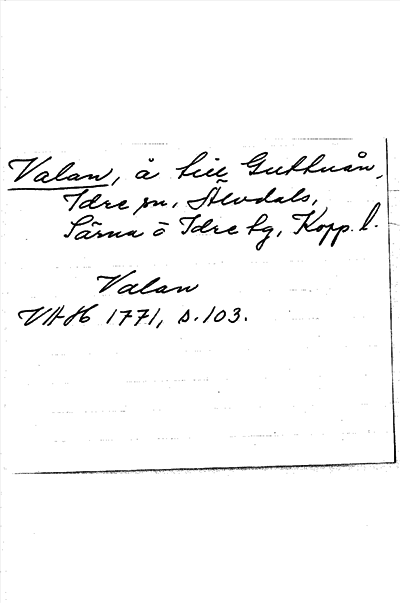 Valan, å till Guttuån,
Idre sn, Älvdals,
Särna ö Idre tg, Kopp. l.
Valan
VAH 1771, s. 103.